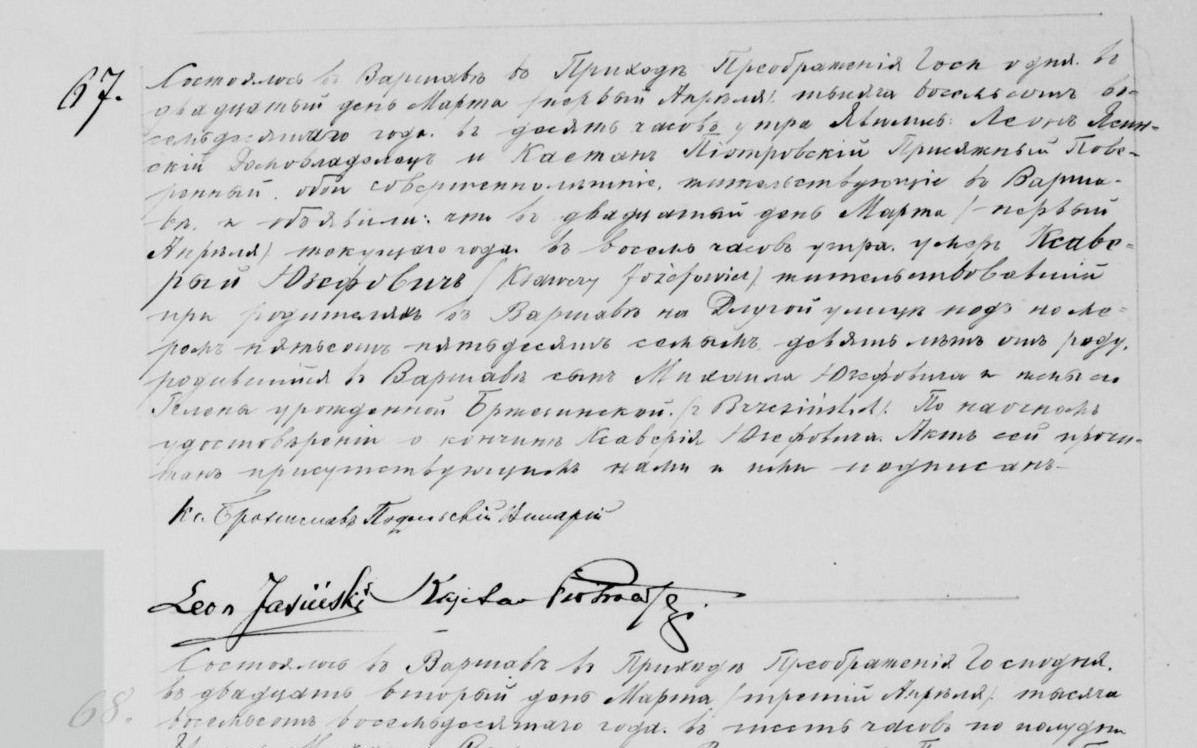 67.
Состоялось въ Варшавѣ въ Приходѣ Преображенія Господня. въ
двадцатый день Марта /первый Апрѣля/. тысяча восемьсотъ во-
семьдесятаго года. въ десять часовъ утра Явились: Леонъ Ясин-
скій Домовладѣлецъ и Каетанъ Піотровскій Присяжный Пове-
ренный. оба совершеннолѣтніе. жительствующіе въ Варша-
вѣ. и объявили: что въ двадцатый день Марта /первый
Апрѣля/ текущаго года. въ восемь часовъ утра. умеръ Ксаве-
рый Юзефовичъ /Ksawery Józefowicz/ жительствовавшій
при родителяхъ въ Варшавѣ на Длугой улицѣ подъ номе-
ромъ пятьсотъ пятьдесятъ семымъ. девять лѣтъ отъ роду.
родившійся въ Варшавѣ сынъ Михаила Юзефовича и жены его
Гелены урожденной Бржезинской. /z Brzezińskich/. По наочномъ
удостовѣреніи о кончинѣ Ксаверія Юзефовича. Актъ сей прочи-
танъ присутствующимъ нами и ими подписанъ
Кс. Брониславъ Подѣльскій Викарій
Leon Jasiński Kajetan Piotrowski
Состоялось въ Варшавѣ въ Приходѣ Преображенія Господня.
68.
въ двадцать вторый день Марта /третій Апрѣля/. тысяча
восемьсотъ восемьдесятаго года. въ шесть часовъ по полудни